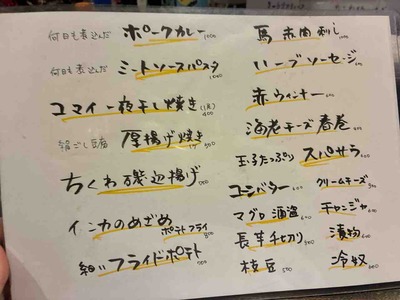 何日も煮込んだ ポークカレー 1000
何日も煮込んだ ミートソースパスタ 1000
コマイ一夜干し焼き (1尾) 400
絹ごし豆腐 厚揚げ焼き 500
ちくわ磯辺揚げ
インカのめざめ ポテトフライ
細い フライドポテト
馬 赤肉刺し
ハーブソーセージ
赤ウィンナー
海老チーズ春巻
玉子たっぷり スパサラ
コーンバター クリームチーズ
マグロ酒盗 チャンジャ
長芋千切り 漬物
枝豆 冷奴